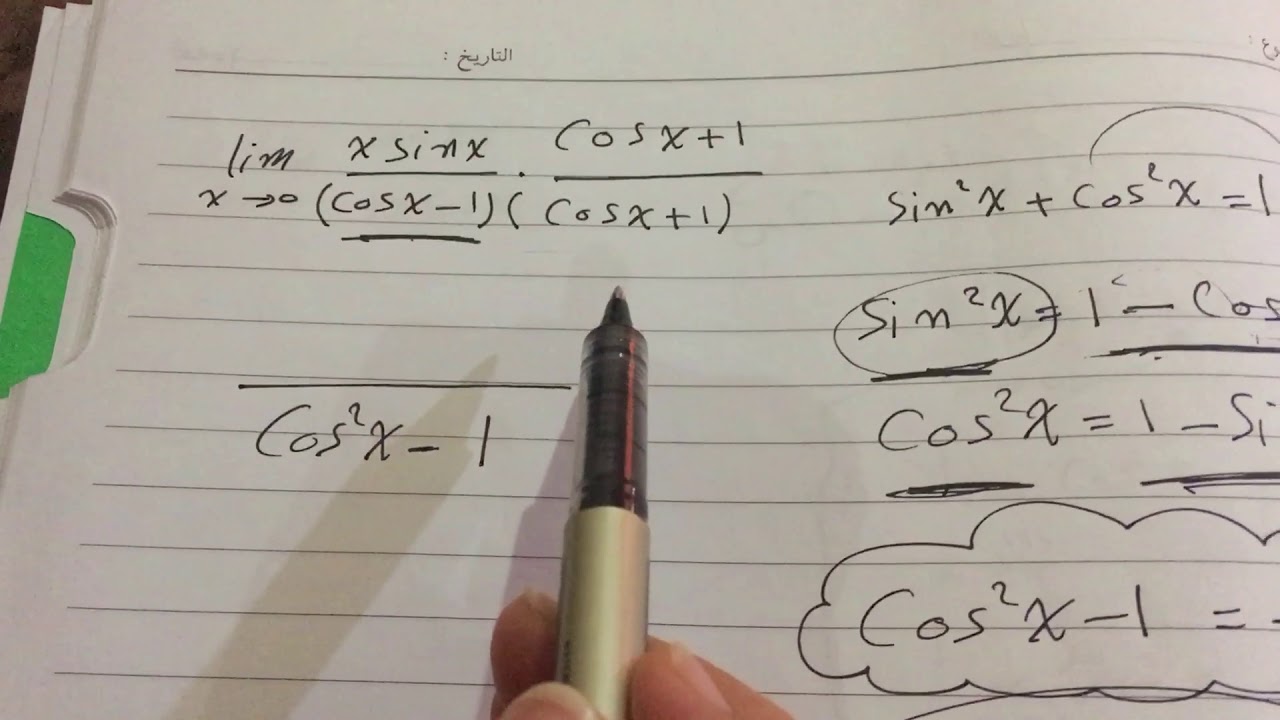 التاريخ :
lim x→0 x sinx / (cosx-1) · cosx+1 / (cosx+1)
cos²x - 1
sin²x + cos²x = 1
sin²x = 1 - cos
cos²x = 1 - si
cos²x - 1 = -